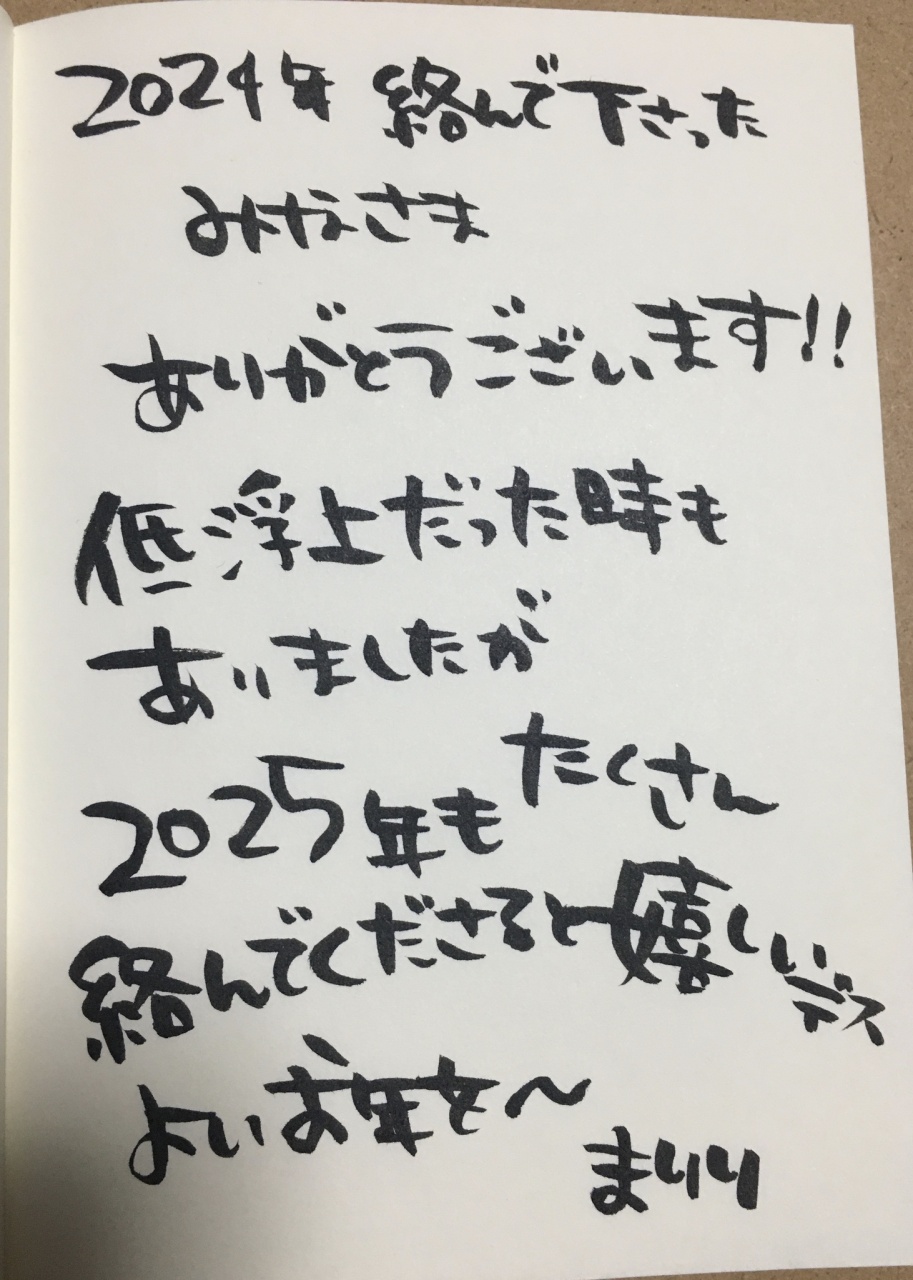 2024年 絡んで下さった
みなさま
ありがとうございます!!
低浮上だった時も
ありましたが
2025年もたくさん
絡んでくださると嬉しいデス
よいお年を〜
まりり